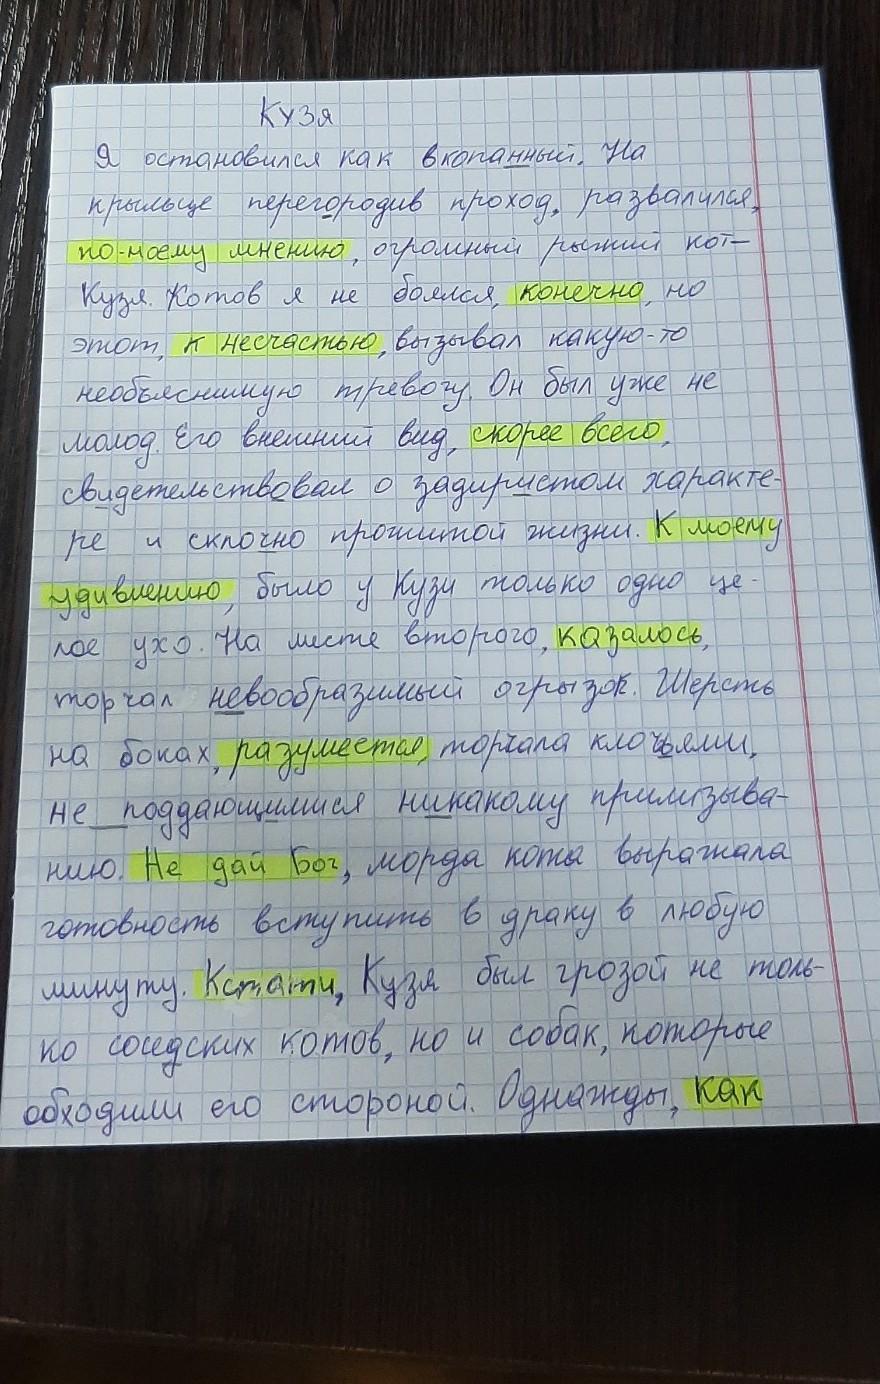 Кузя
Я остановился как вкопанный. На
крыльце перегородив проход, развалился,
по-моему мнению, огромный рыжий кот-
Кузя. Котов я не боялся, конечно, но
этот, к несчастью, вызывал какую-то
необъяснимую тревогу. Он был уже не
молод. Его внешний вид, скорее всего,
свидетельствовал о задиристом характе-
ре и склочно прожитой жизни. К моему
удивлению, было у Кузи только одно це-
лое ухо. На месте второго, казалось,
торчал невообразимый огрызок. Шерсть
на боках, разумеется, торчала клочьями,
не поддающимися никакому прилизыва-
нию. Не дай Бог, морда кота выражала
готовность вступить в драку в любую
минуту. Кстати, Кузя был грозой не толь-
ко соседских котов, но и собак, которые
обходили его стороной. Однажды, как